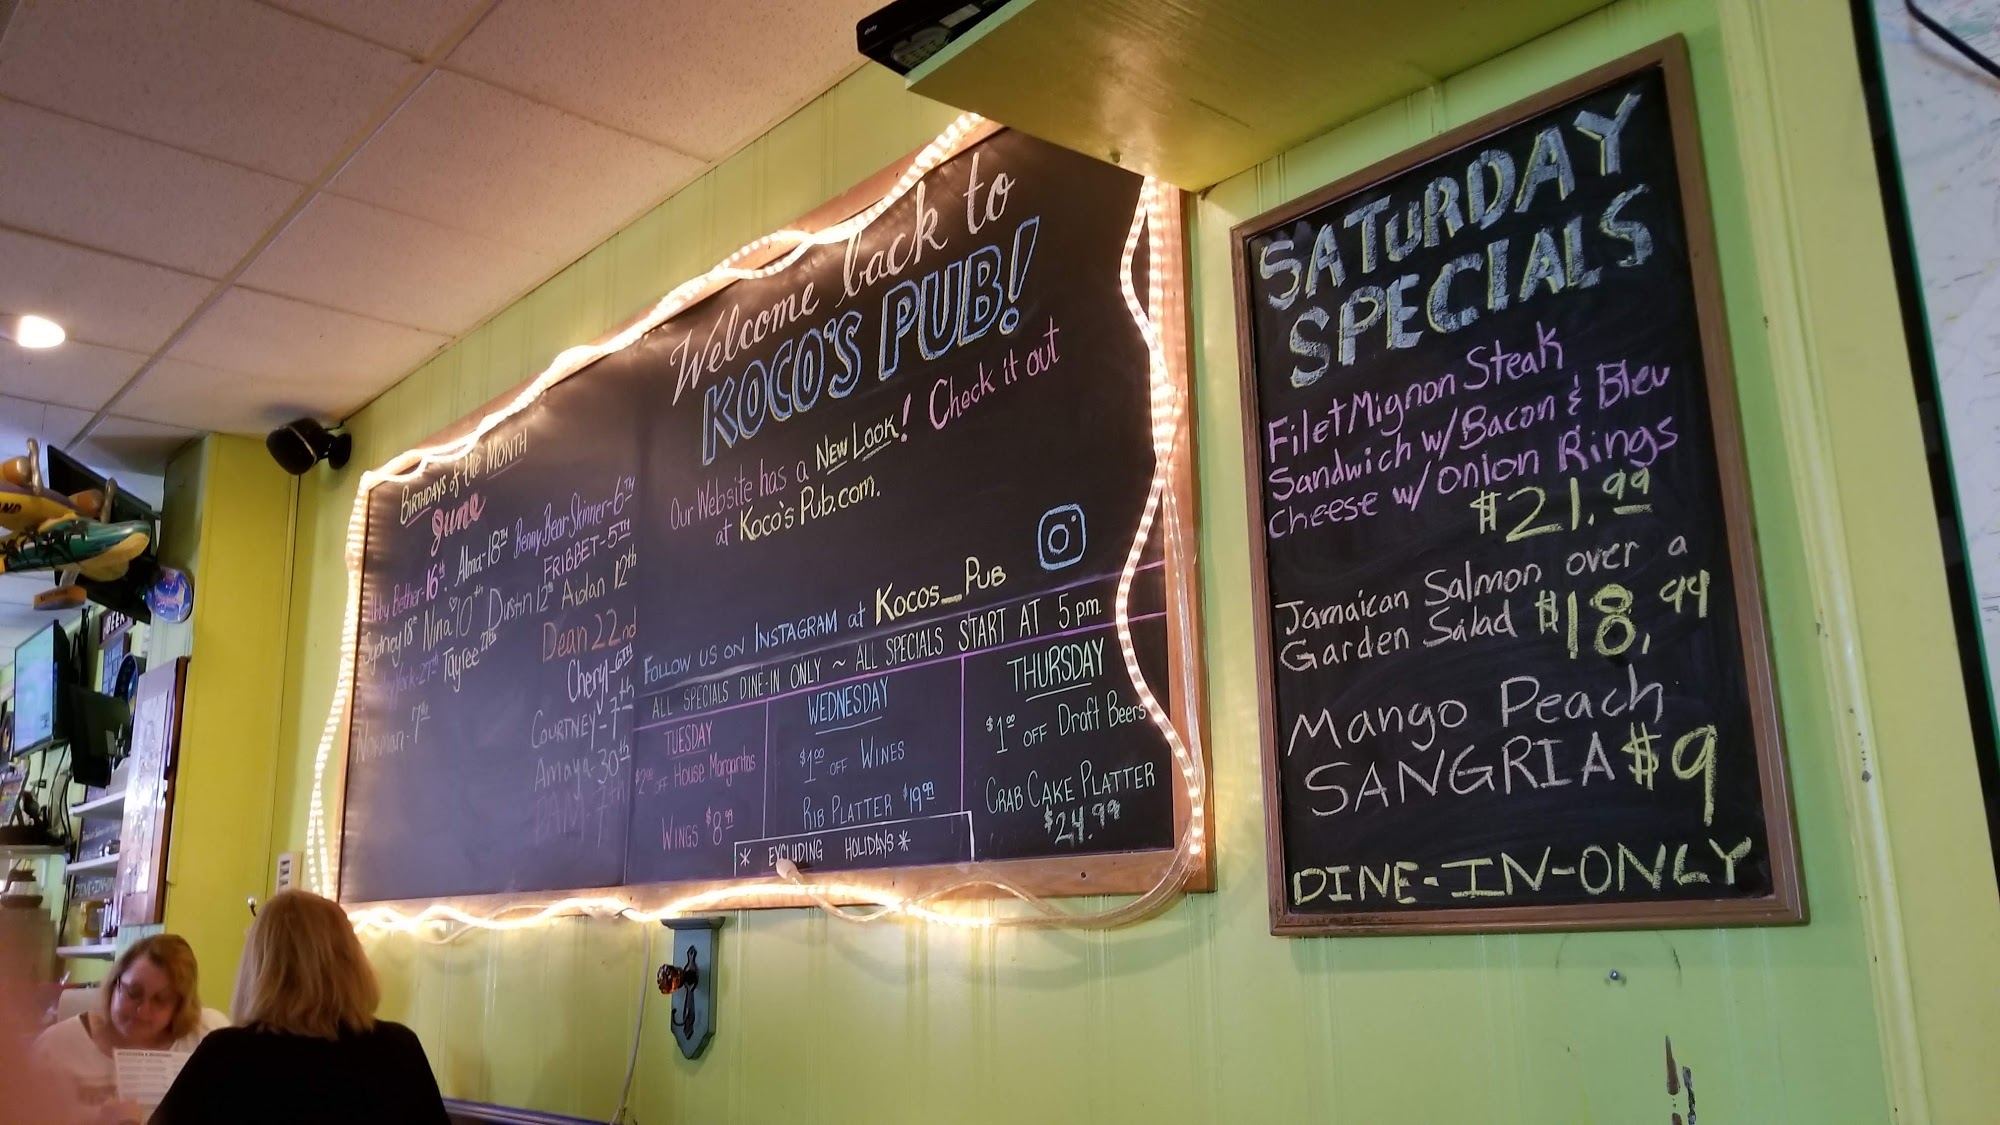 BIRTHDAYS of the MONTH
June
Bether-16th Alma-18TH Benny Bear Skinner-6TH
FRIBBET-5TH
Sydney 18th Nina 10th Dustin 12th Aidan 12th
York-27th Taylee
Dean 22nd
Cheryl-6TH
Norman-7TH
COURTNEY-7th
Amaya-30th
BAM-7th
Welcome back to
KOCO'S PUB!
Our Website has a NEW LOOK! Check it out
at Koco's Pub.com.
FOLLOW US ON INSTAGRAM at Kocos_Pub
ALL SPECIALS DINE-IN ONLY ~ ALL SPECIALS START AT 5 pm.
TUESDAY
$2.00 OFF House Margaritas
WINGS $8.99
WEDNESDAY
$1.00 OFF WINES
RIB PLATTER $19.99
THURSDAY
$1.00 OFF Draft Beers
CRAB CAKE PLATTER
$24.99
* EXCLUDING HOLIDAYS *
SATURDAY
SPECIALS
Filet Mignon Steak
Sandwich w/Bacon & Bleu
Cheese w/Onion Rings
$21.99
Jamaican Salmon over a
Garden Salad $18.99
Mango Peach
SANGRIA $9
DINE-IN-ONLY